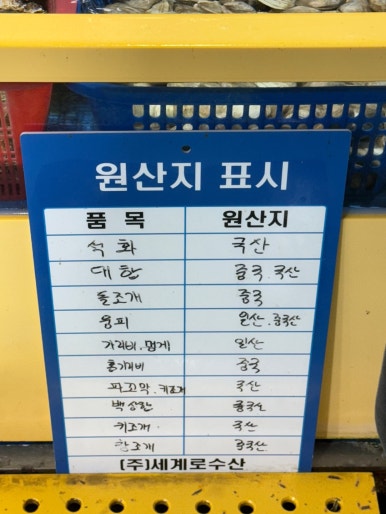 원산지 표시
품 목 원산지
석 화 국산
대 합 중국. 국산
돌조개 중국
웅피 일산. 중국산
가리비. 멍게 일산
홍가리비 중국
파꼬막. 키조개 국산
백생합 중국산
키조개 국산
참조개 중국산
(주)세계로수산